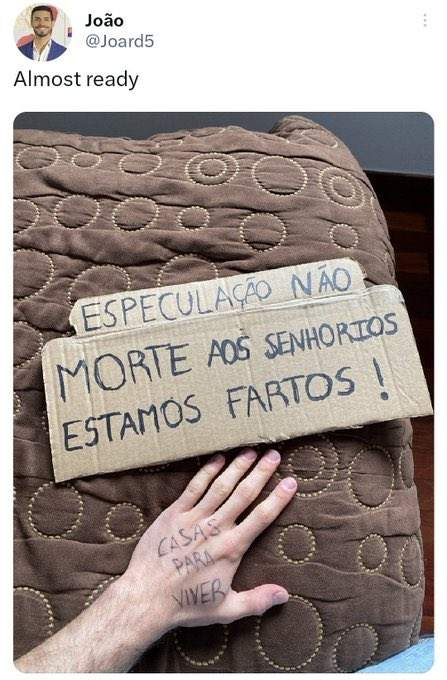 João
@Joard5
Almost ready
ESPECULAÇÃO NÃO
MORTE AOS SENHORIOS
ESTAMOS FARTOS !
CASAS
PARA
VIVER